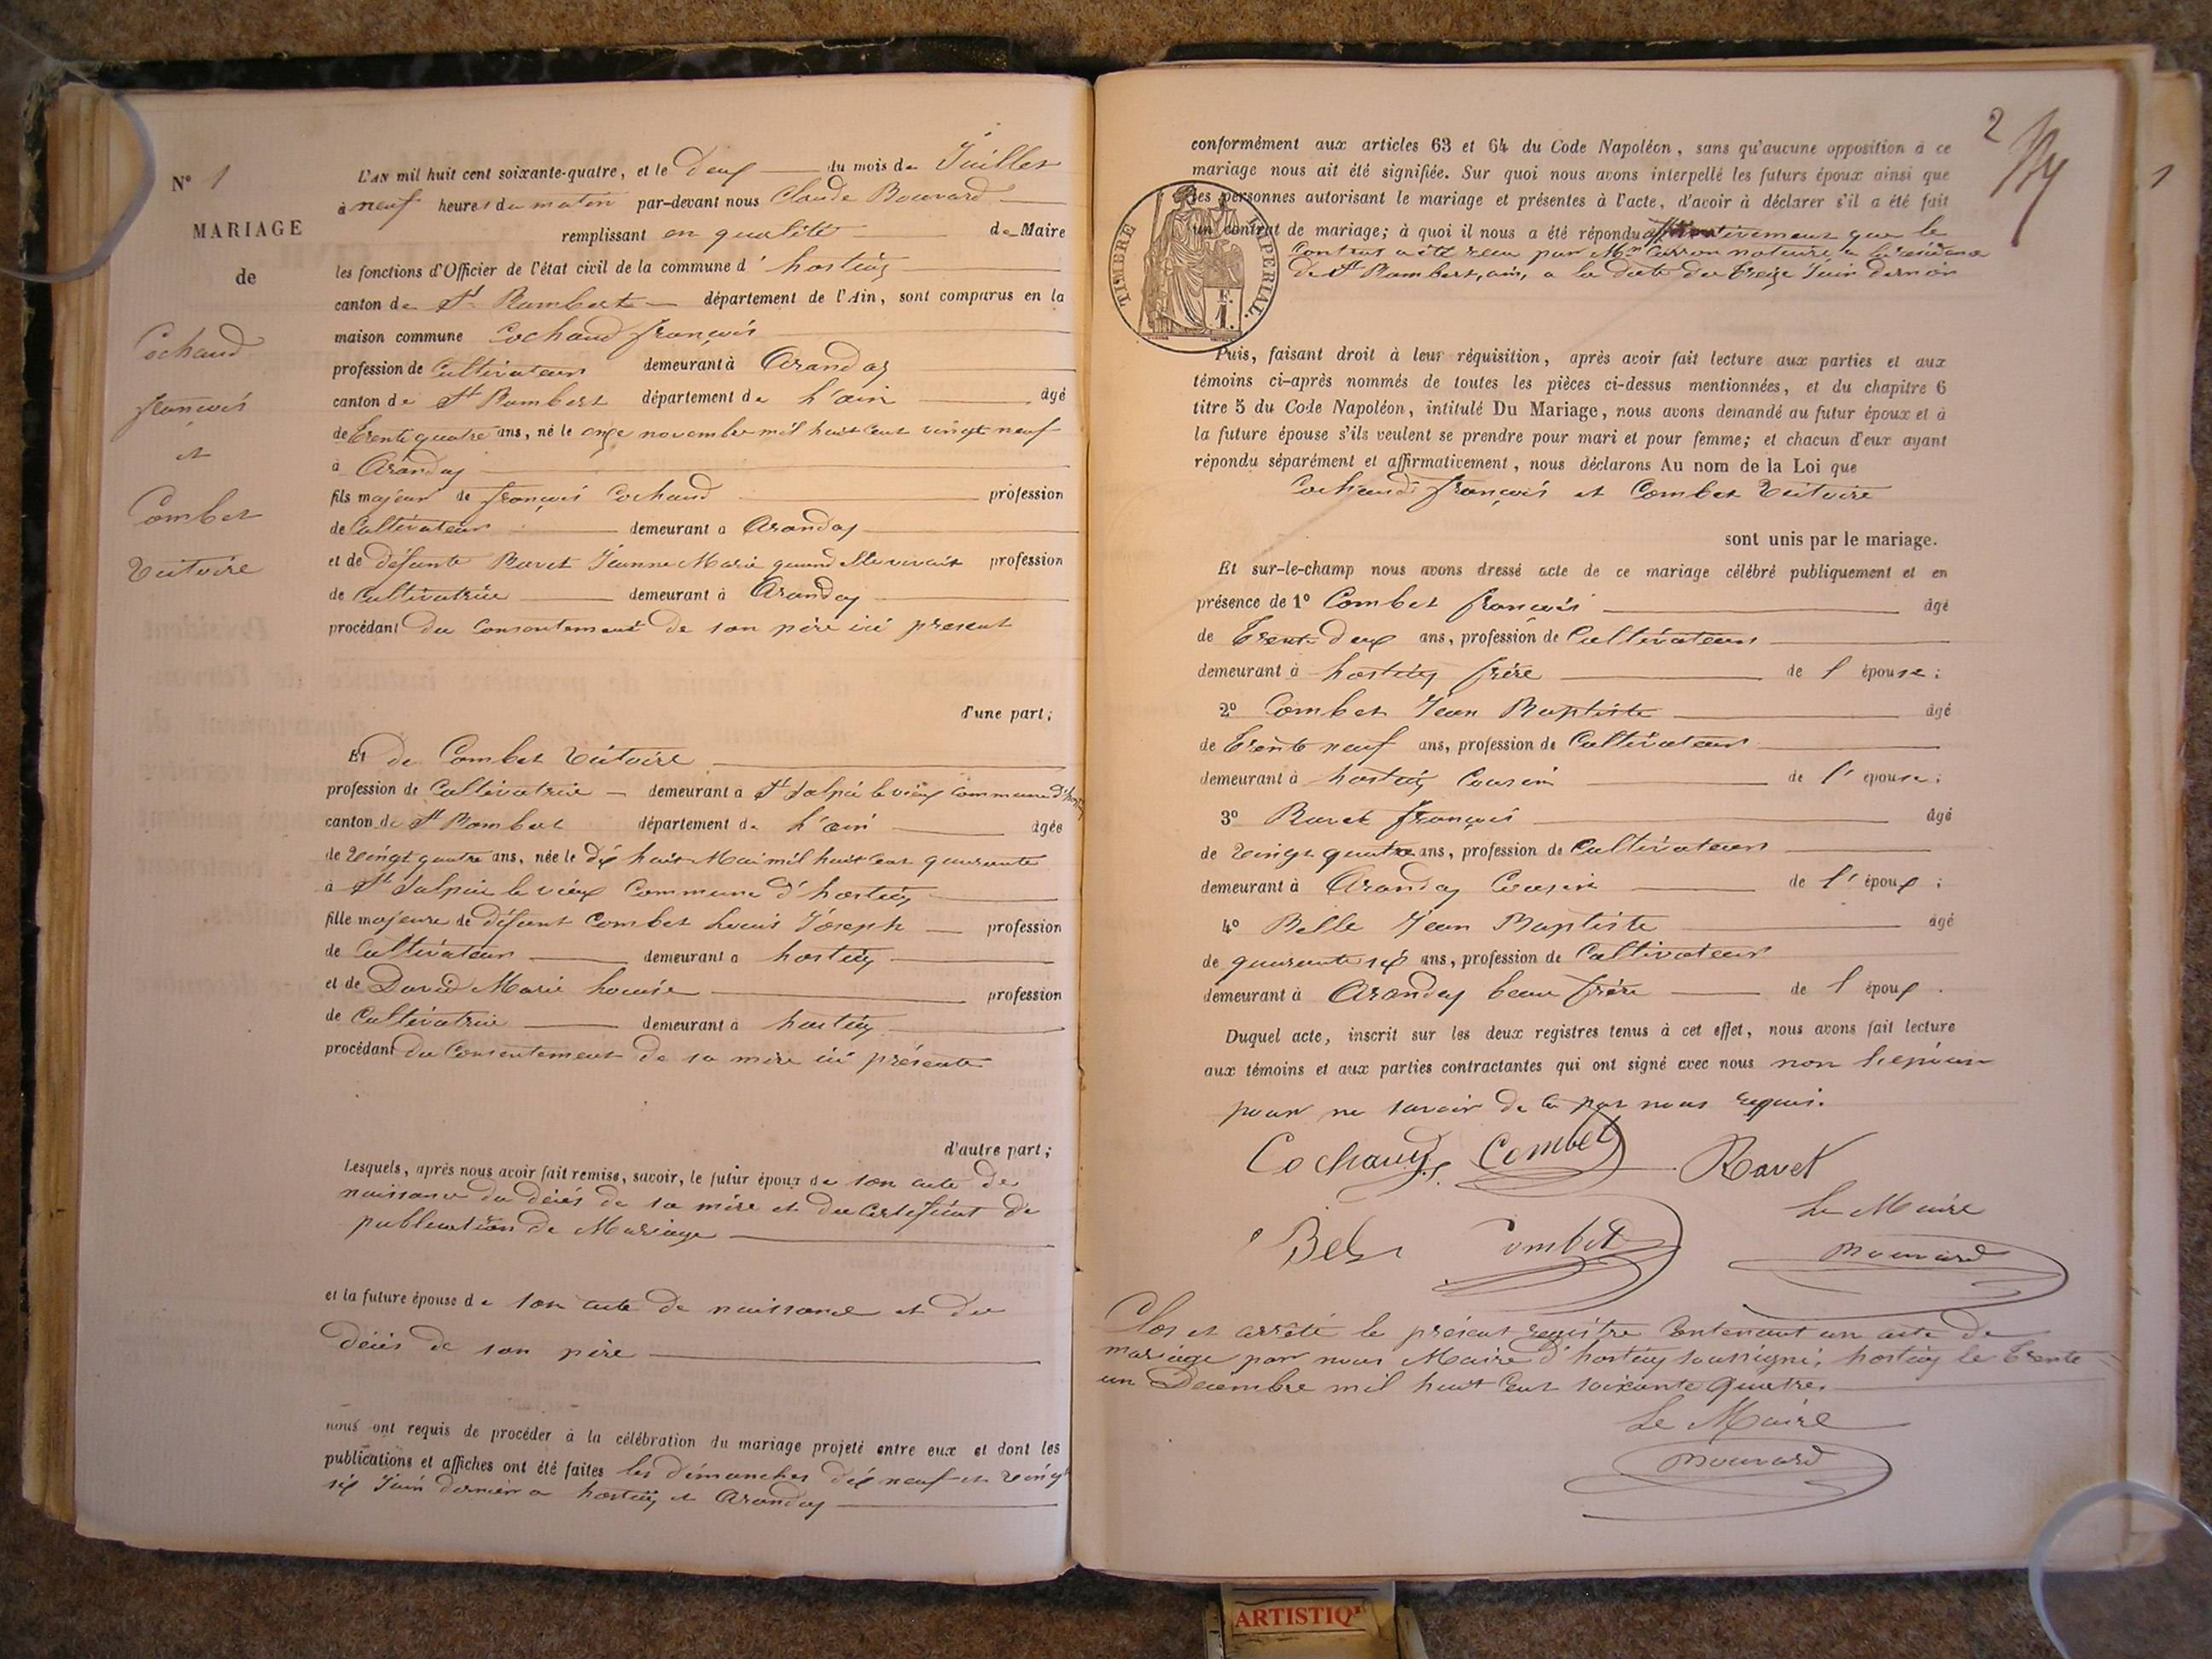 N° 1
MARIAGE
de
Cochaud
françois
et
Combet
Victoire
L'AN mil huit cent soixante-quatre, et le deux du mois de Juillet
à neuf heures du matin par-devant nous Claude Bouvard
remplissant en qualité de Maire
les fonctions d'Officier de l'état civil de la commune d' hostiaz
canton de St Rambert département de l'Ain, sont comparus en la
maison commune Cochaud françois
profession de Cultivateur demeurant à Arandas
canton de St Rambert département de l'ain âgé
de trente quatre ans, né le onze novembre mil huit cent vingt neuf
à Arandas
fils majeur de françois Cochaud profession
de Cultivateur demeurant à Arandas
et de défunte Ravet Jeanne Marie quand elle vivait profession
de Cultivatrice demeurant à Arandas
procédant du Consentement de son père ici présent
d'une part;
Et de Combet Victoire
profession de Cultivatrice demeurant à St Sulpice le vieux commune d'hostiaz
canton de St Rambert département de l'ain âgée
de vingt quatre ans, née le dix huit Mai mil huit cent quarante
à St Sulpice le vieux Commune d'hostiaz
fille majeure de défunt Combet Louis Joseph profession
de Cultivateur demeurant à hostiaz
et de David Marie Louise profession
de Cultivatrice demeurant à hostiaz
procédant du Consentement de sa mère ici présente
d'autre part;
Lesquels, après nous avoir fait remise, savoir, le futur époux de son acte de
naissance du décès de sa mère et du Certificat de
publication de Mariage
et la future épouse de son acte de naissance et du
décès de son père
nous ont requis de procéder à la célébration du mariage projeté entre eux et dont les
publications et affiches ont été faites les dimanches dix neuf et vingt
six Juin dernier a hostiaz et Arandas
2
1
conformément aux articles 63 et 64 du Code Napoléon, sans qu'aucune opposition à ce
mariage nous ait été signifiée. Sur quoi nous avons interpellé les futurs époux ainsi que
les personnes autorisant le mariage et présentes à l'acte, d'avoir à déclarer s'il a été fait
un contrat de mariage; à quoi il nous a été répondu affirmativement que le
Contrat a été reçu par Me Carron notaire a la résidence
de St Rambert, ain, a la date du treize Juin dernier
TIMBRE IMPERIAL.
F.
1.
Puis, faisant droit à leur réquisition, après avoir fait lecture aux parties et aux
témoins ci-après nommés de toutes les pièces ci-dessus mentionnées, et du chapitre 6
titre 5 du Code Napoléon, intitulé Du Mariage, nous avons demandé au futur époux et à
la future épouse s'ils veulent se prendre pour mari et pour femme; et chacun d'eux ayant
répondu séparément et affirmativement, nous déclarons Au nom de la Loi que
Cochaud françois et Combet Victoire
sont unis par le mariage.
Et sur-le-champ nous avons dressé acte de ce mariage célébré publiquement et en
présence de 1° Combet françois âgé
de trente deux ans, profession de Cultivateur
demeurant à hostiaz frère de l'épouse;
2° Combet Jean Baptiste âgé
de trente neuf ans, profession de Cultivateur
demeurant à hostiaz Cousin de l'épouse;
3° Ravet françois âgé
de vingt quatre ans, profession de Cultivateur
demeurant à Arandas Cousin de l'époux;
4° Belle Jean Baptiste âgé
de quarante six ans, profession de Cultivateur
demeurant à Arandas beau frère de l'époux.
Duquel acte, inscrit sur les deux registres tenus à cet effet, nous avons fait lecture
aux témoins et aux parties contractantes qui ont signé avec nous non l'épouse
pour ne savoir de ce par nous requis.
Cochaud Combet Ravet
Le Maire
Combet
Bouvard
Clos et arrêté le présent registre Contenant un acte de
mariage par nous Maire d'hostiaz soussigné, hostiaz le trente
un Décembre mil huit Cent soixante quatre.
Le Maire
Bouvard
ARTISTIQ